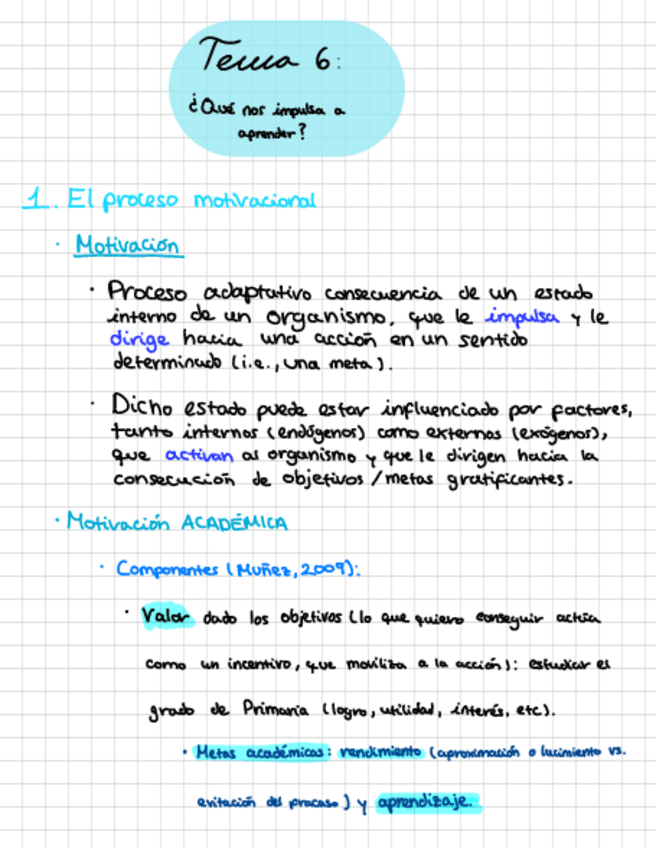 Tema 6:
¿Qué nos impulsa a
aprender?
1. El proceso motivacional
· Motivación
· Proceso adaptativo consecuencia de un estado
interno de un organismo, que le impulsa y le
dirige hacia una acción en un sentido
determinado (i.e., una meta).
· Dicho estado puede estar influenciado por factores,
tanto internos (endógenos) como externos (exógenos),
que activan al organismo y que le dirigen hacia la
consecución de objetivos/metas gratificantes.
· Motivación ACADÉMICA
· Componentes (Muñez, 2009):
· Valor dado los objetivos (lo que quiero conseguir actúa
como un incentivo, que moviliza a la acción): estudiar el
grado de Primaria (logro, utilidad, interés, etc).
· Metas académicas: rendimiento (aproximación o lucimiento vs.
evitación del fracaso) y aprendizaje.